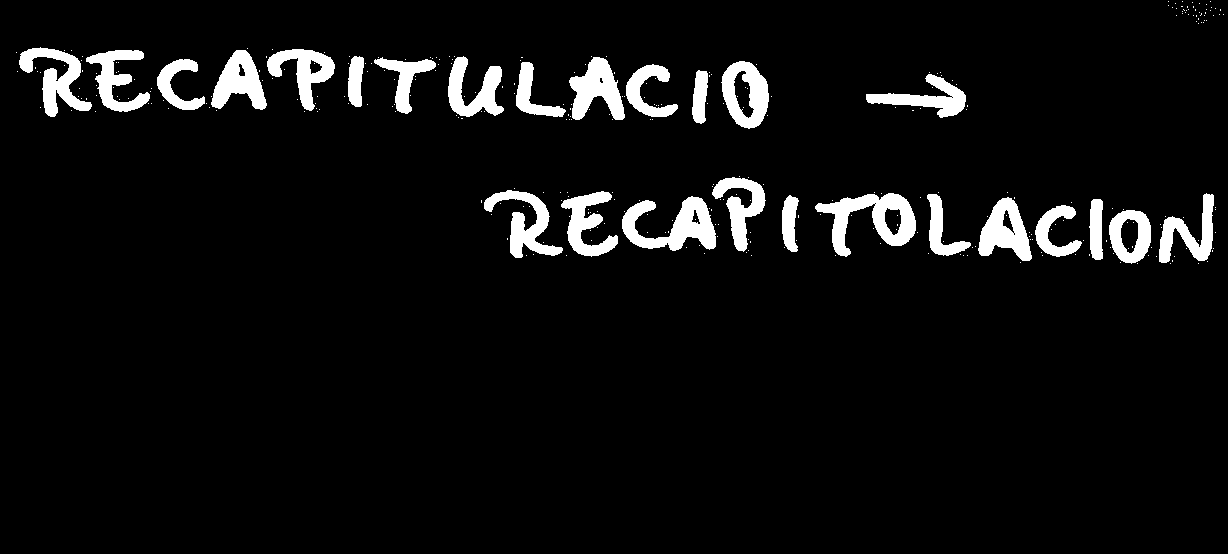 RECAPITULACIO →
RECAPITOLACION